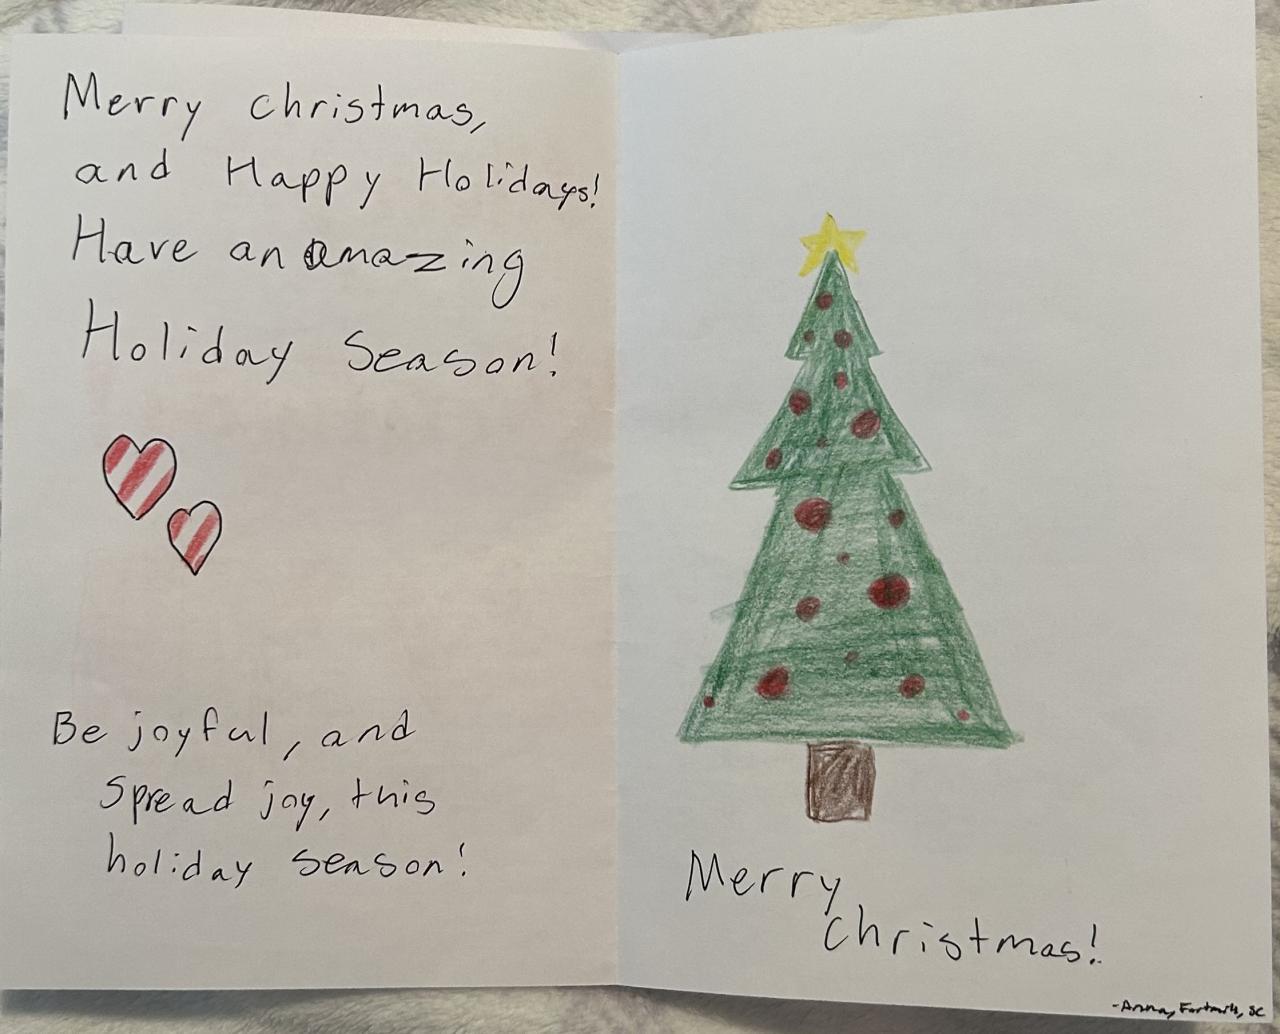 Merry christmas,
and Happy Holidays!
Have an amazing
Holiday Season!
Be joyful, and
Spread joy, this
holiday season!
Merry
christmas!
-Anna, Fortmill, SC